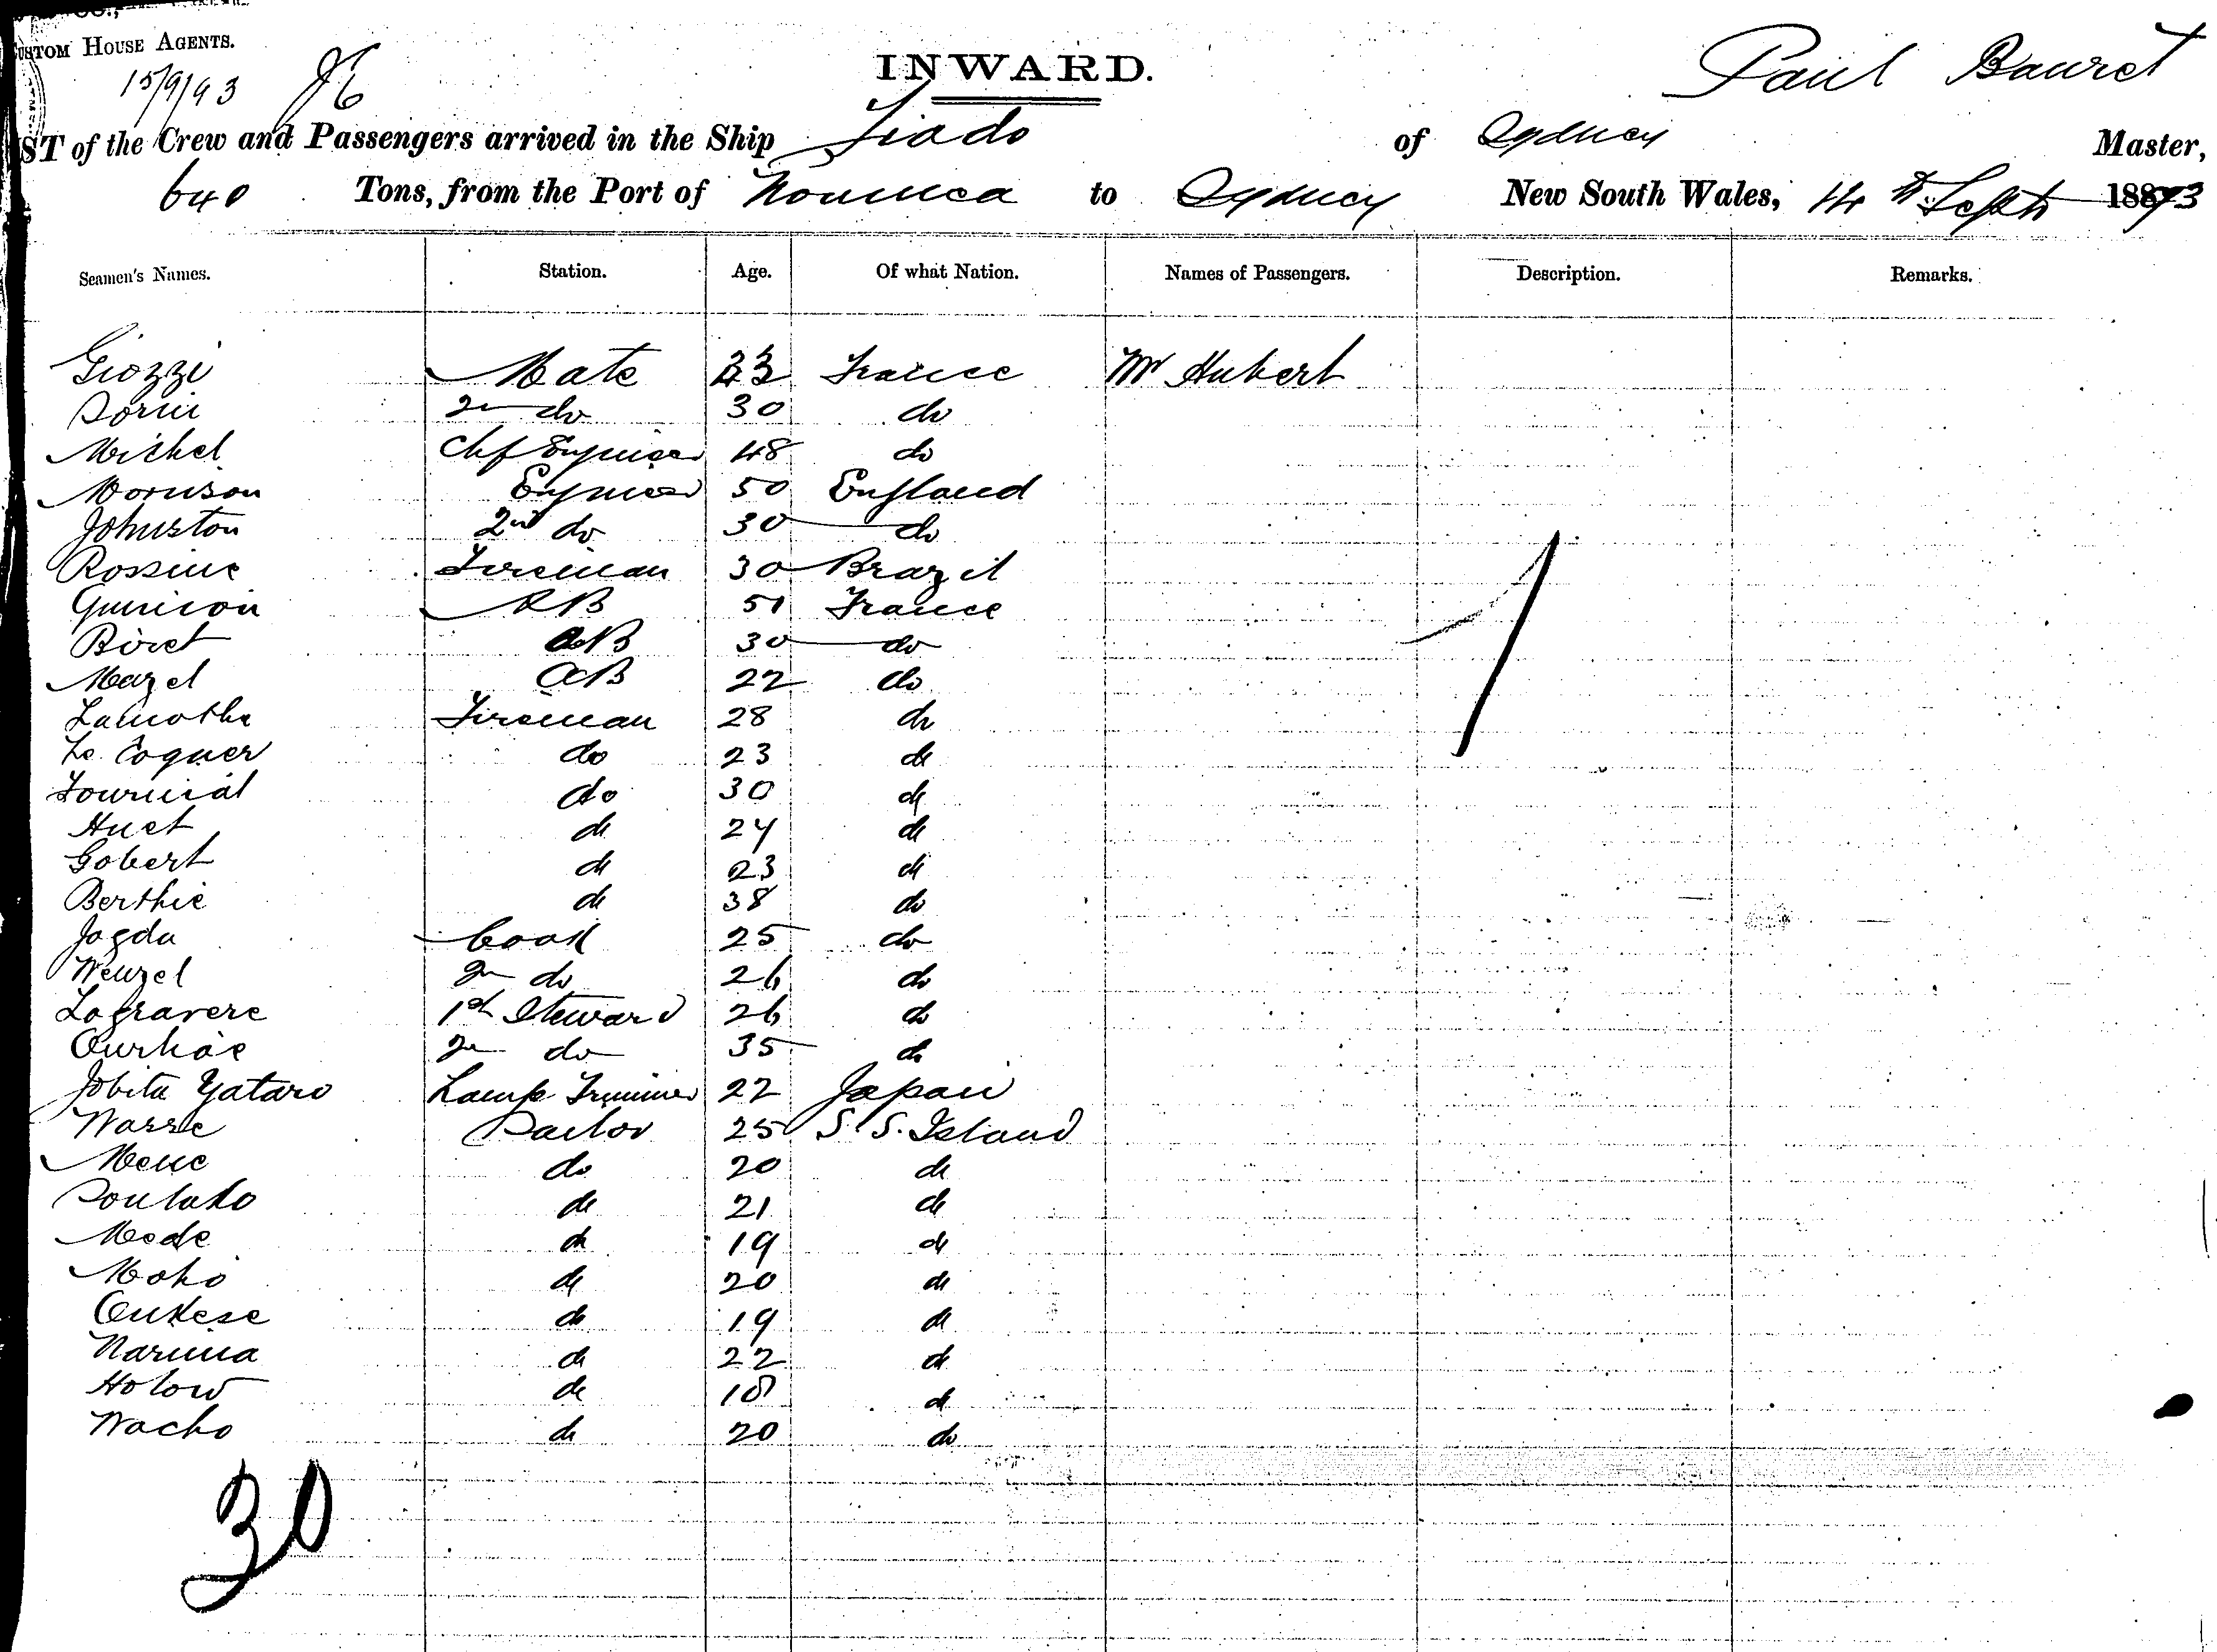 CUSTOM HOUSE AGENTS.
15/9/93
INWARD.
Paul Bauret
LIST of the Crew and Passengers arrived in the Ship Liado of Sydney Master,
640 Tons, from the Port of Noumea to Sydney New South Wales, 14th Sept 1893
Seamen's Names. Station. Age. Of what Nation. Names of Passengers. Description. Remarks.
Giozzi Mate 33 France Mr Hubert
Dorin 2n do 30 do
Michel Chf Engineer 48 do
Morrison Engineer 50 England
Johnston 2nd do 30 do
Rossine Fireman 30 Brazil
AB 51 France
Biret AB 30 do
Mazel AB 22 do
Lamothe Fireman 28 do
Le Coguer do 23 do
Fournial do 30 do
Huet do 24 do
Gobert do 23 do
Berthie do 38 do
Jagda Cook 25 do
Wenzel 2n do 26 do
Lagravere 1st Steward 26 do
2n do 35 do
Jobita Yataro Lamp Trimmer 22 Japan
Wasse Sailor 25 S. S. Island
Mene do 20 do
Toulako do 21 do
Mede do 19 do
Moko do 20 do
Oukese do 19 do
Narima do 22 do
Holow do 18 do
Wacho do 20 do
30